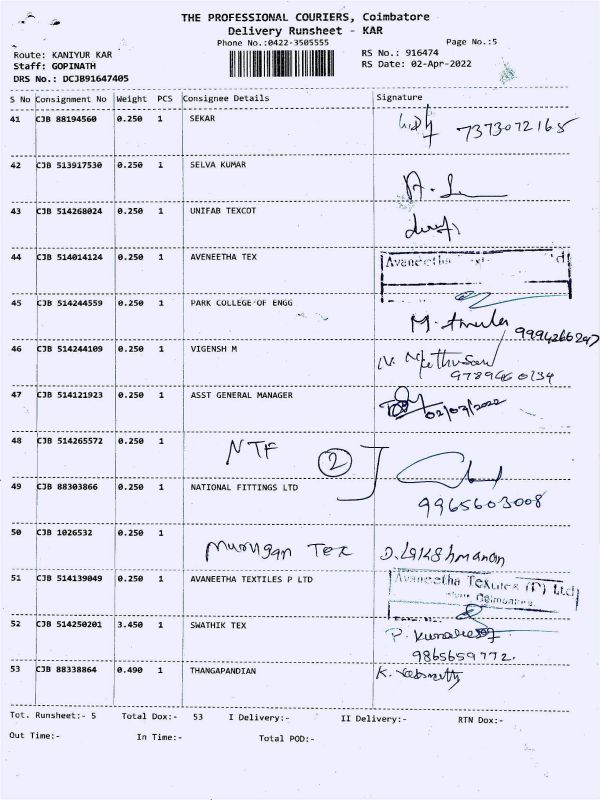 THE PROFESSIONAL COURIERS, Coimbatore
Delivery Runsheet - KAR
Phone No.:0422-3505555
Page No.:5
Route: KANIYUR KAR
RS No.: 916474
Staff: GOPINATH
RS Date: 02-Apr-2022
DRS No.: DCJB91647405
S No Consignment No Weight PCS Consignee Details Signature
41 CJB 88194560 0.250 1 SEKAR
7373072165
42 CJB 513917530 0.250 1 SELVA KUMAR
43 CJB 514268024 0.250 1 UNIFAB TEXCOT
44 CJB 514014124 0.250 1 AVENEETHA TEX
Avaneetha
45 CJB 514244559 0.250 1 PARK COLLEGE OF ENGG
M.
46 CJB 514244109 0.250 1 VIGENSH M
47 CJB 514121923 0.250 1 ASST GENERAL MANAGER
02/03/2022
48 CJB 514265572 0.250 1 NTF
2
49 CJB 88303866 0.250 1 NATIONAL FITTINGS LTD
9965603008
50 CJB 1026532 0.250 1
Murugan Tex D. Lakshmanan
51 CJB 514139049 0.250 1 AVANEETHA TEXTILES P LTD Avaneetha Textiles (P) Ltd
Coimbatore
52 CJB 514250201 3.450 1 SWATHIK TEX
9865659772.
53 CJB 88338864 0.490 1 THANGAPANDIAN K.
Tot. Runsheet:- 5 Total Dox:- 53 I Delivery:- II Delivery:- RTN Dox:-
Out Time:- In Time:- Total POD:-